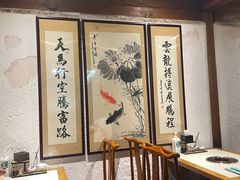 雲龍搏浪展鵬程
天馬行空騰富路